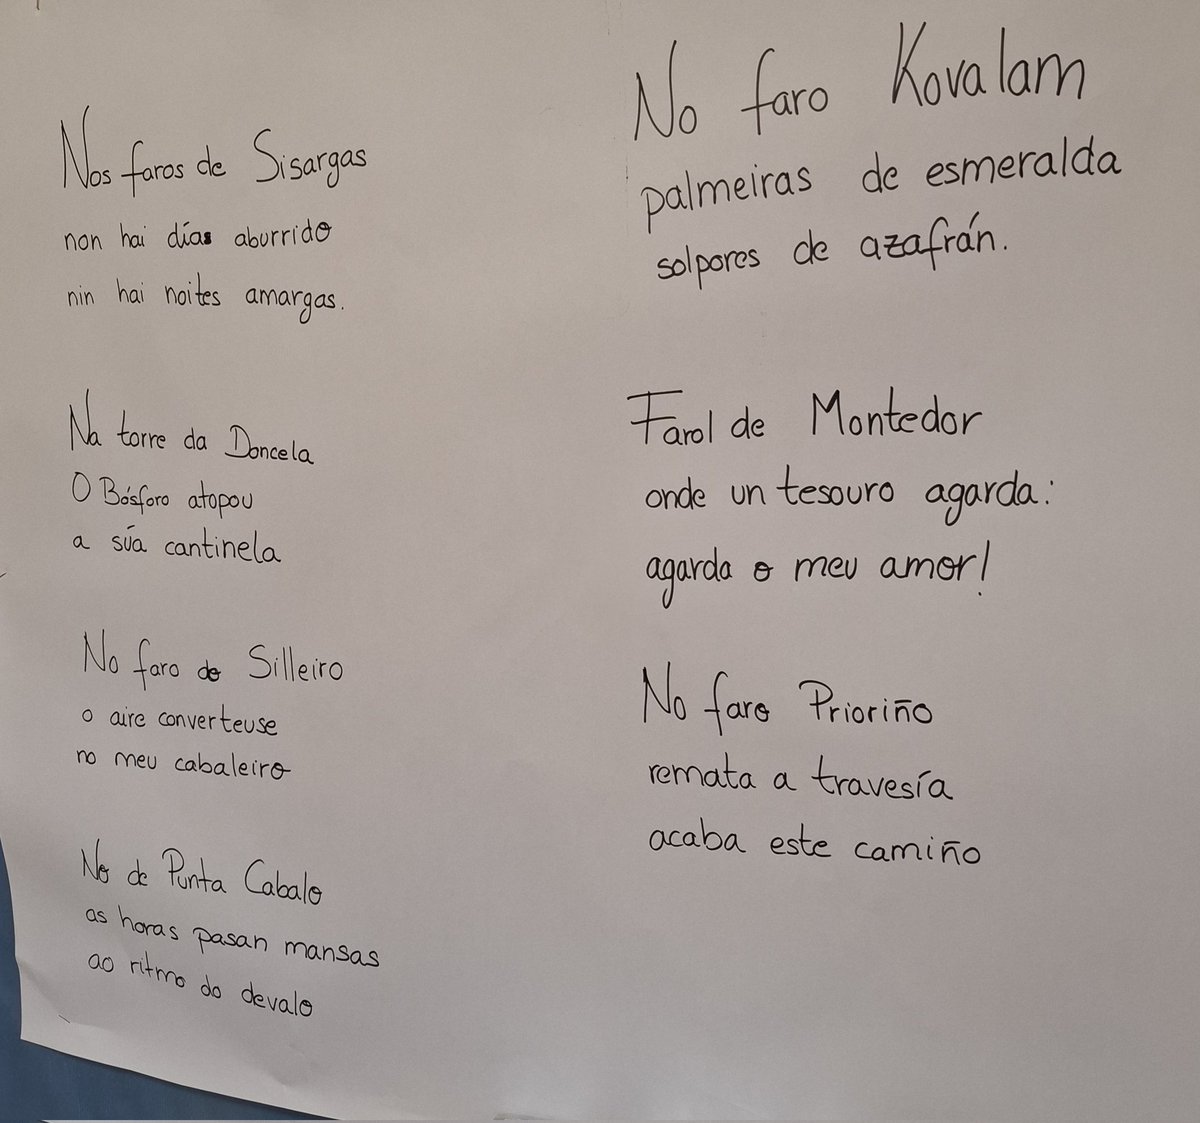 Nos faros de Sisargas
non hai días aburrido
nin hai noites amargas.
Na torre da Doncela
O Bósforo atopou
a súa cantinela
No faro de Silleiro
o aire converteuse
no meu cabaleiro
No de Punta Cabalo
as horas pasan mansas
ao ritmo do devalo
No faro Kovalam
palmeiras de esmeralda
solpores de azafrán.
Farol de Montedor
onde un tesouro agarda:
agarda o meu amor!
No faro Prioriño
remata a travesía
acaba este camiño